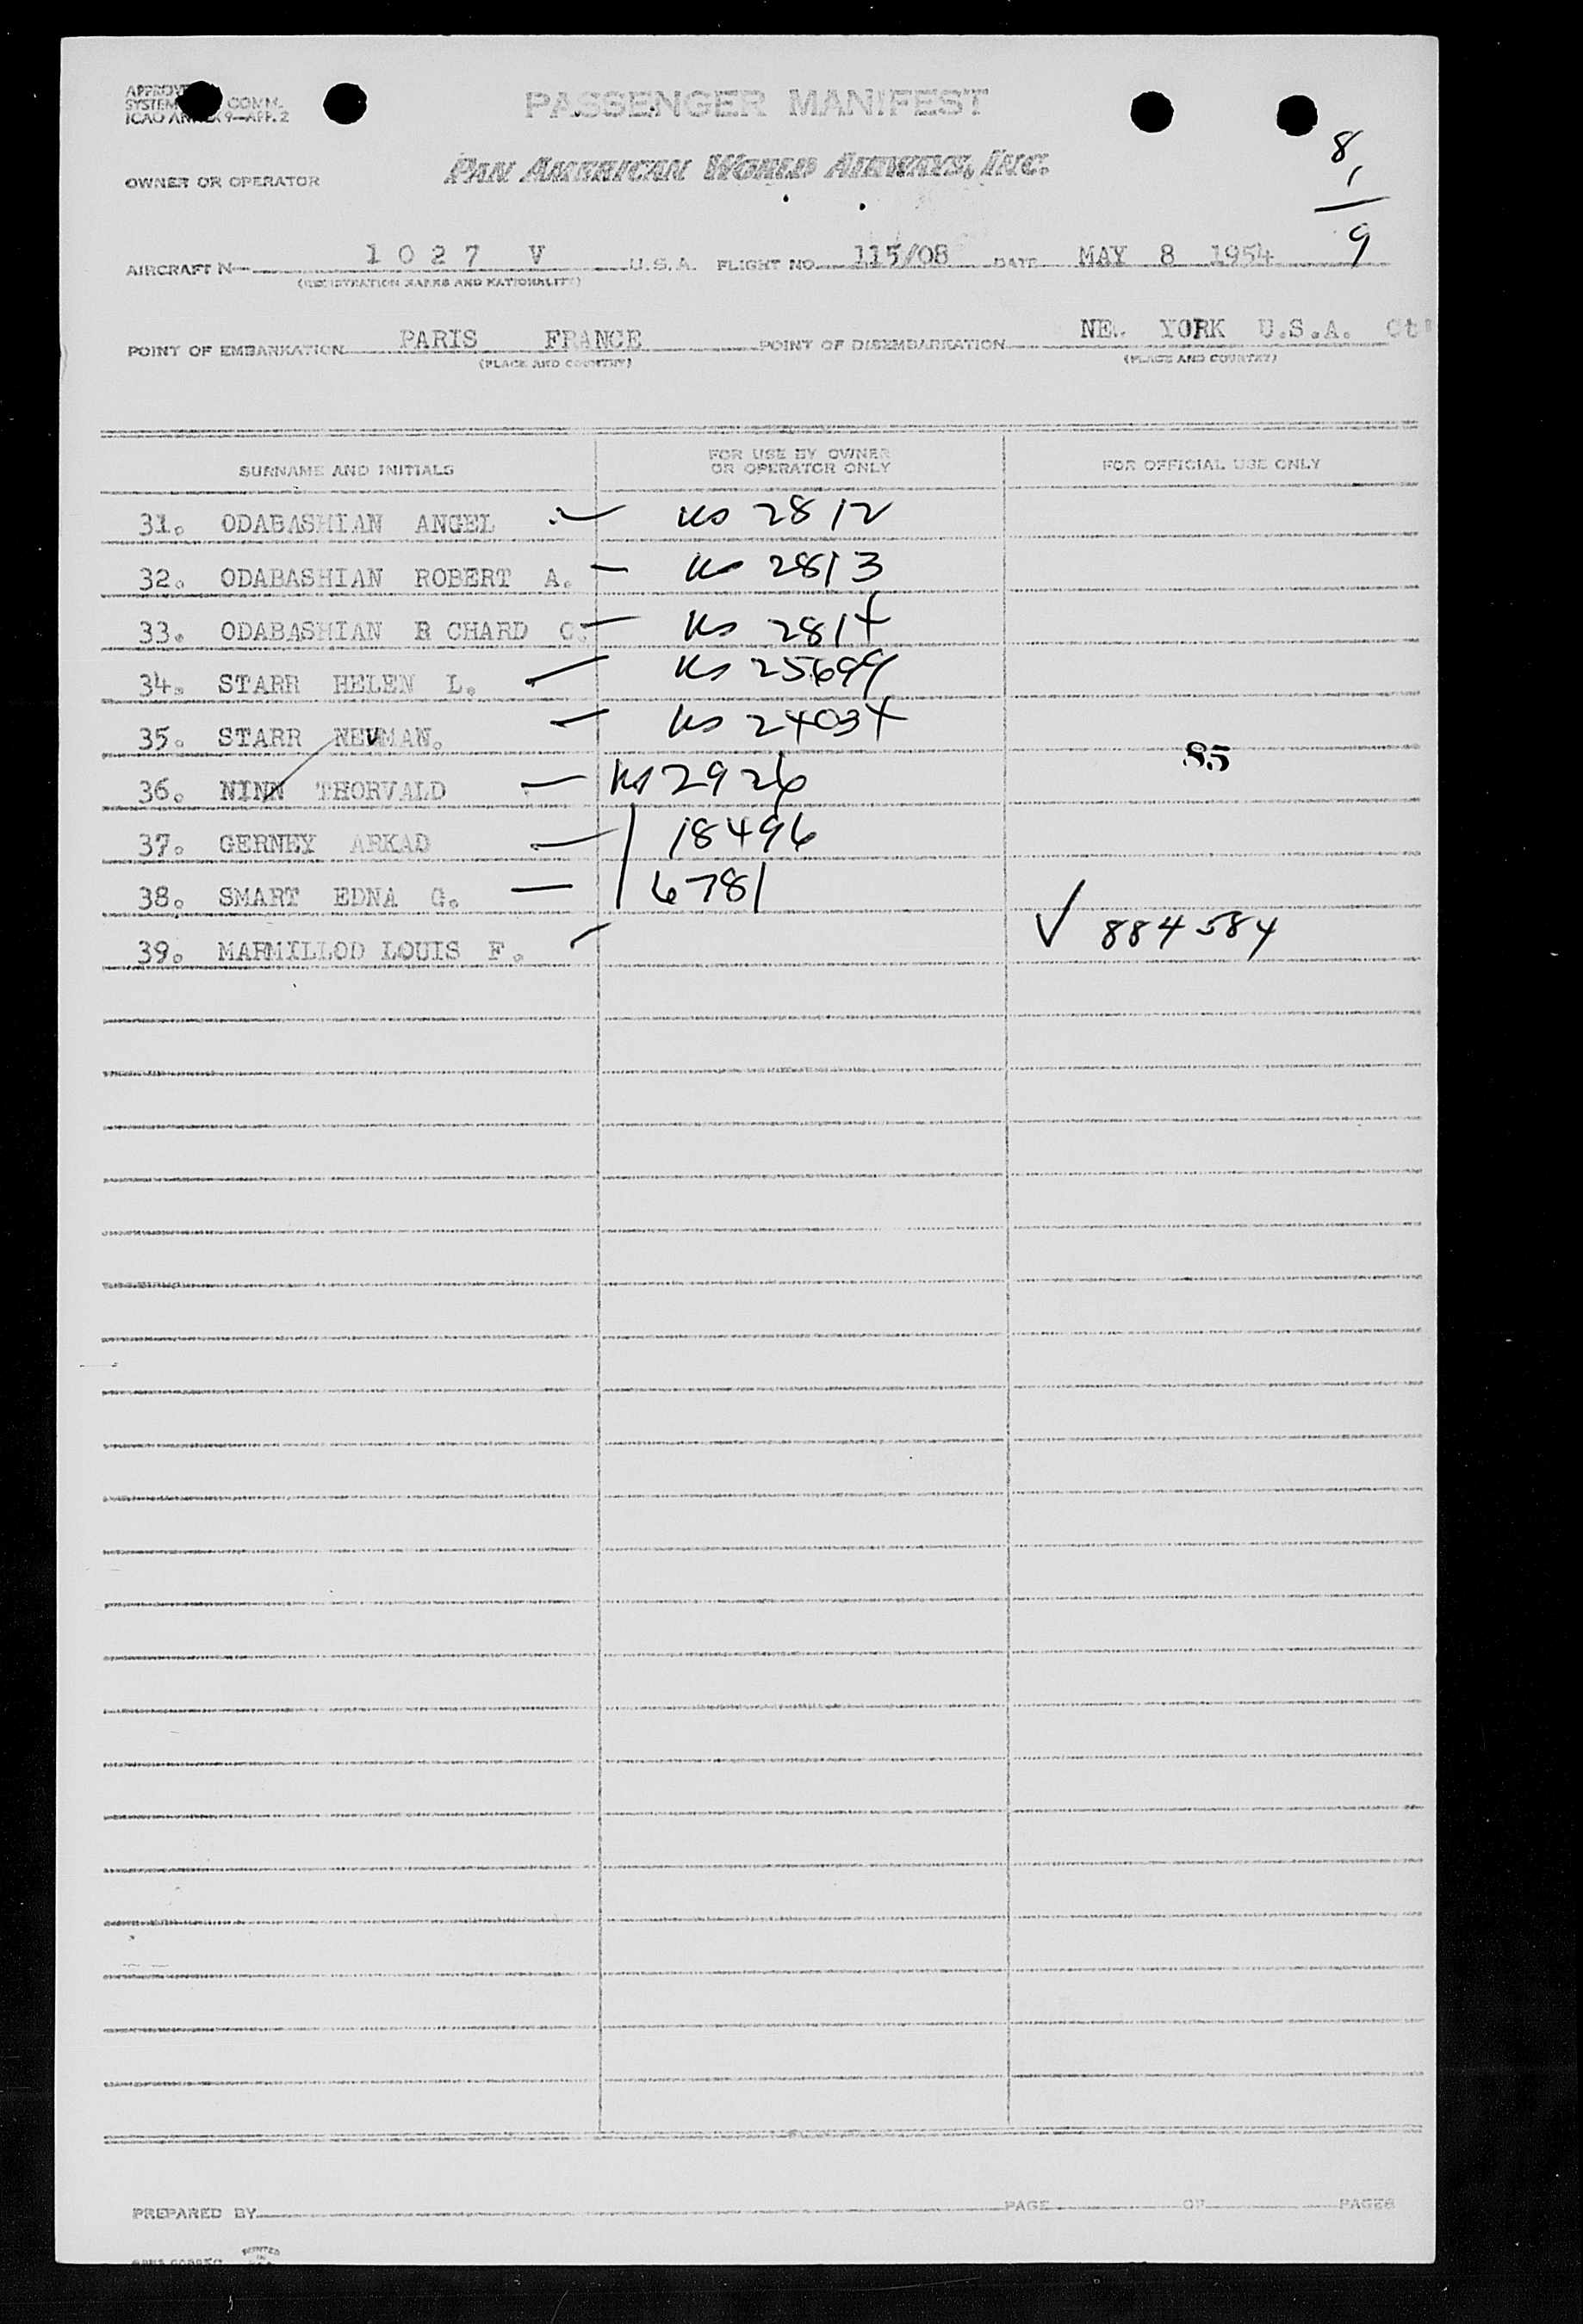 SYSTEM COMM.
ICAO ANNEX 9—APP. 2
PASSENGER MANIFEST
OWNER OR OPERATOR
PAN AMERICAN WORLD AIRWAYS, INC.
8
1
9
AIRCRAFT N— 1 0 2 7 V U.S.A. FLIGHT NO. 115/08 DATE MAY 8 1954
(REGISTRATION MARKS AND NATIONALITY)
POINT OF EMBARKATION PARIS FRANCE POINT OF DISEMBARKATION NE. YORK U.S.A.
(PLACE AND COUNTRY) (PLACE AND COUNTRY)
SURNAME AND INITIALS FOR USE BY OWNER OR OPERATOR ONLY FOR OFFICIAL USE ONLY
31. ODABASHIAN ANGEL — us 2812
32. ODABASHIAN ROBERT A. — us 2813
33. ODABASHIAN R CHARD C. — us 2814
34. STARR HELEN L. — us 25699
35. STARR NEWMAN. — us 24034
85
36. NINN THORVALD — us 2926
37. GERNEY ARKAD — | 18496
38. SMART EDNA G. — | 6781
39. MARMILLOD LOUIS F. — ✓ 884584
PREPARED BY PAGE OF PAGES
PRINTED
IN